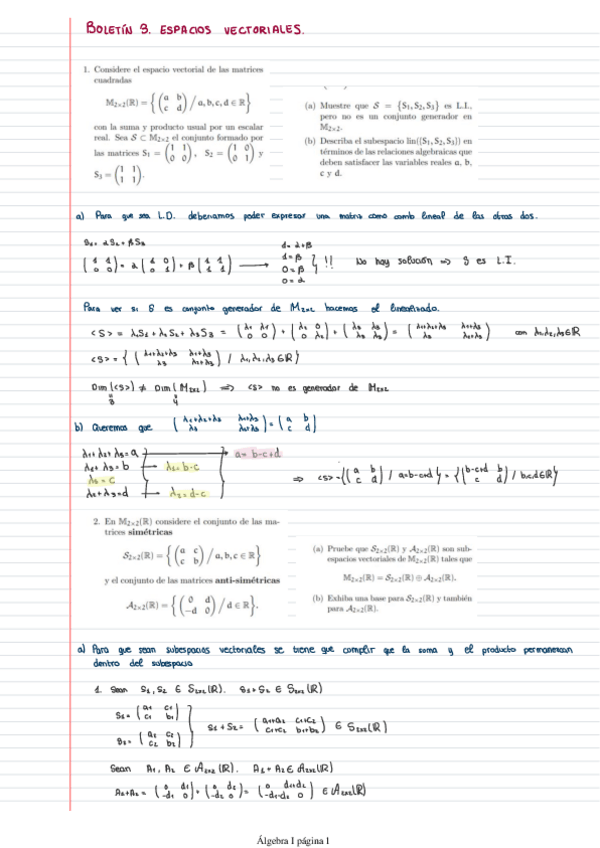 BOLETÍN 9. ESPACIOS VECTORIALES.
1. Considere el espacio vectorial de las matrices
cuadradas
M₂ₓ₂(ℝ) = { (a b; c d) / a, b, c, d ∈ ℝ }
con la suma y producto usual por un escalar
real. Sea S ⊂ M₂ₓ₂ el conjunto formado por
las matrices S₁ = (1 1; 0 0), S₂ = (1 0; 0 1) y
S₃ = (1 1; 1 1).
(a) Muestre que S = {S₁, S₂, S₃} es L.I.,
pero no es un conjunto generador en
M₂ₓ₂.
(b) Describa el subespacio lin({S₁, S₂, S₃}) en
términos de las relaciones algebraicas que
deben satisfacer las variables reales a, b,
c y d.
a) Para que sea L.D. deberiamos poder expresar una matriz como comb lineal de las otras dos.
S₁ = αS₂ + βS₃
(1 1; 0 0) = α (1 0; 0 1) + β (1 1; 1 1) ⟶
1 = α+β
1 = β
0 = β
0 = α
!! No hay solución ⇒ S es L.I.
Para ver si S es conjunto generador de M₂ₓ₂ hacemos el linealizado.
<S> = λ₁S₁ + λ₂S₂ + λ₃S₃ = (λ₁ λ₁; 0 0) + (λ₂ 0; 0 λ₂) + (λ₃ λ₃; λ₃ λ₃) = (λ₁+λ₂+λ₃ λ₁+λ₃; λ₃ λ₂+λ₃) con λ₁,λ₂,λ₃∈ℝ
<S> = { (λ₁+λ₂+λ₃ λ₁+λ₃; λ₃ λ₂+λ₃) / λ₁,λ₂,λ₃∈ℝ}
Dim(<S>) ≠ Dim(M₂ₓ₂) ⇒ <S> no es generador de M₂ₓ₂
3 4
b) Queremos que (λ₁+λ₂+λ₃ λ₁+λ₃; λ₃ λ₂+λ₃) = (a b; c d)
λ₁+λ₂+λ₃ = a ⟶ a = b-c+d
λ₁+λ₃ = b ⟶ λ₁ = b-c
λ₃ = c
λ₂+λ₃ = d ⟶ λ₂ = d-c
⇒ <S> = {(a b; c d) / a=b-c+d} = {(b-c+d b; c d) / b,c,d∈ℝ}
2. En M₂ₓ₂(ℝ) considere el conjunto de las ma-
trices simétricas
S₂ₓ₂(ℝ) = { (a c; c b) / a, b, c ∈ ℝ }
y el conjunto de las matrices anti-simétricas
A₂ₓ₂(ℝ) = { (0 d; -d 0) / d ∈ ℝ }.
(a) Pruebe que S₂ₓ₂(ℝ) y A₂ₓ₂(ℝ) son sub-
espacios vectoriales de M₂ₓ₂(ℝ) tales que
M₂ₓ₂(ℝ) = S₂ₓ₂(ℝ) ⊕ A₂ₓ₂(ℝ).
(b) Exhiba una base para S₂ₓ₂(ℝ) y también
para A₂ₓ₂(ℝ).
a) Para que sean subespacios vectoriales se tiene que cumplir que la suma y el producto permanezcan
dentro del subespacio
1. Sean S₁, S₂ ∈ S₂ₓ₂(ℝ). S₁+S₂ ∈ S₂ₓ₂(ℝ)
S₁ = (a₁ c₁; c₁ b₁)
S₂ = (a₂ c₂; c₂ b₂)
S₁+S₂ = (a₁+a₂ c₁+c₂; c₁+c₂ b₁+b₂) ∈ S₂ₓ₂(ℝ)
Sean A₁, A₂ ∈ A₂ₓ₂(ℝ). A₁+A₂ ∈ A₂ₓ₂(ℝ)
A₁+A₂ = (0 d₁; -d₁ 0) + (0 d₂; -d₂ 0) = (0 d₁+d₂; -d₁-d₂ 0) ∈ A₂ₓ₂(ℝ)
Álgebra I página 1